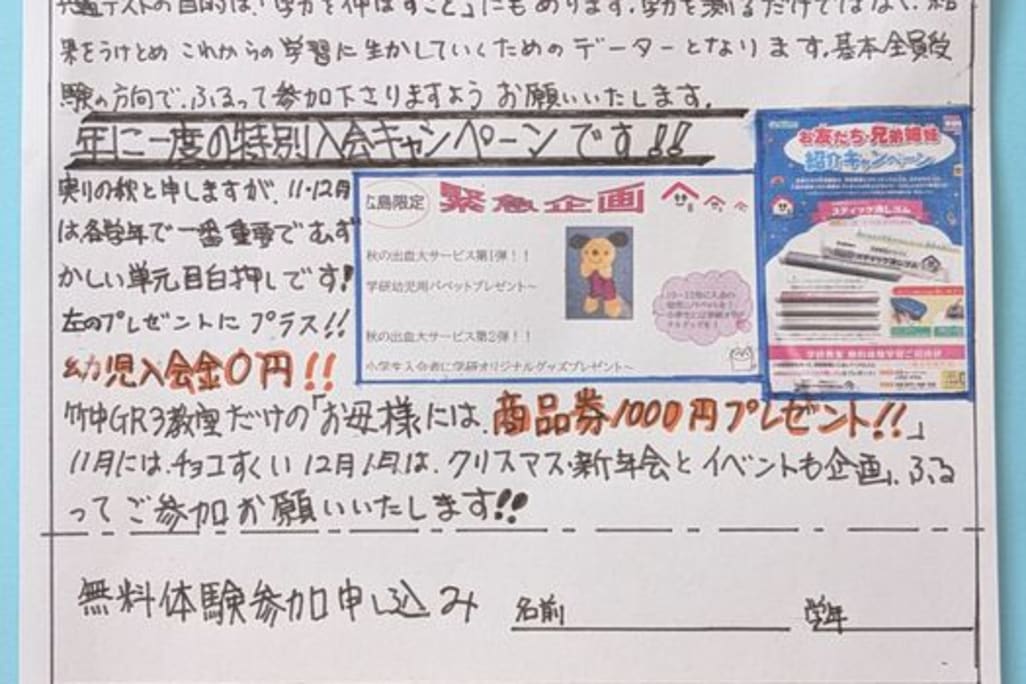 共通テストの目的は、「学力を伸ばすこと」にもあります。学力を測るだけではなく、結
果をうけとめ これからの学習に生かしていくためのデーターとなります。基本全員受
験の方向で、ふるって参加下さりますよう お願いいたします。
年に一度の特別入会キャンペーンです!!
実りの秋と申しますが、11・12月
は、各学年で一番重要でむず
かしい単元目白押しです!
左のプレゼントにプラス!!
幼児入会金0円!!
広島限定
緊急企画
秋の出血大サービス第1弾!!
学研幼児用パペットプレゼント~
秋の出血大サービス第2弾!!
小学生入会者に学研オリジナルグッズプレゼント~
お友だち・兄弟姉妹
紹介キャンペーン
スティック消しゴム
竹中GR3教室だけの「お母様には、商品券1000円プレゼント!!」
11月には、チョコすくい 12月1月は、クリスマス・新年会とイベントも企画、ふる
ってご参加お願いいたします!!
無料体験参加申し込み 名前 学年